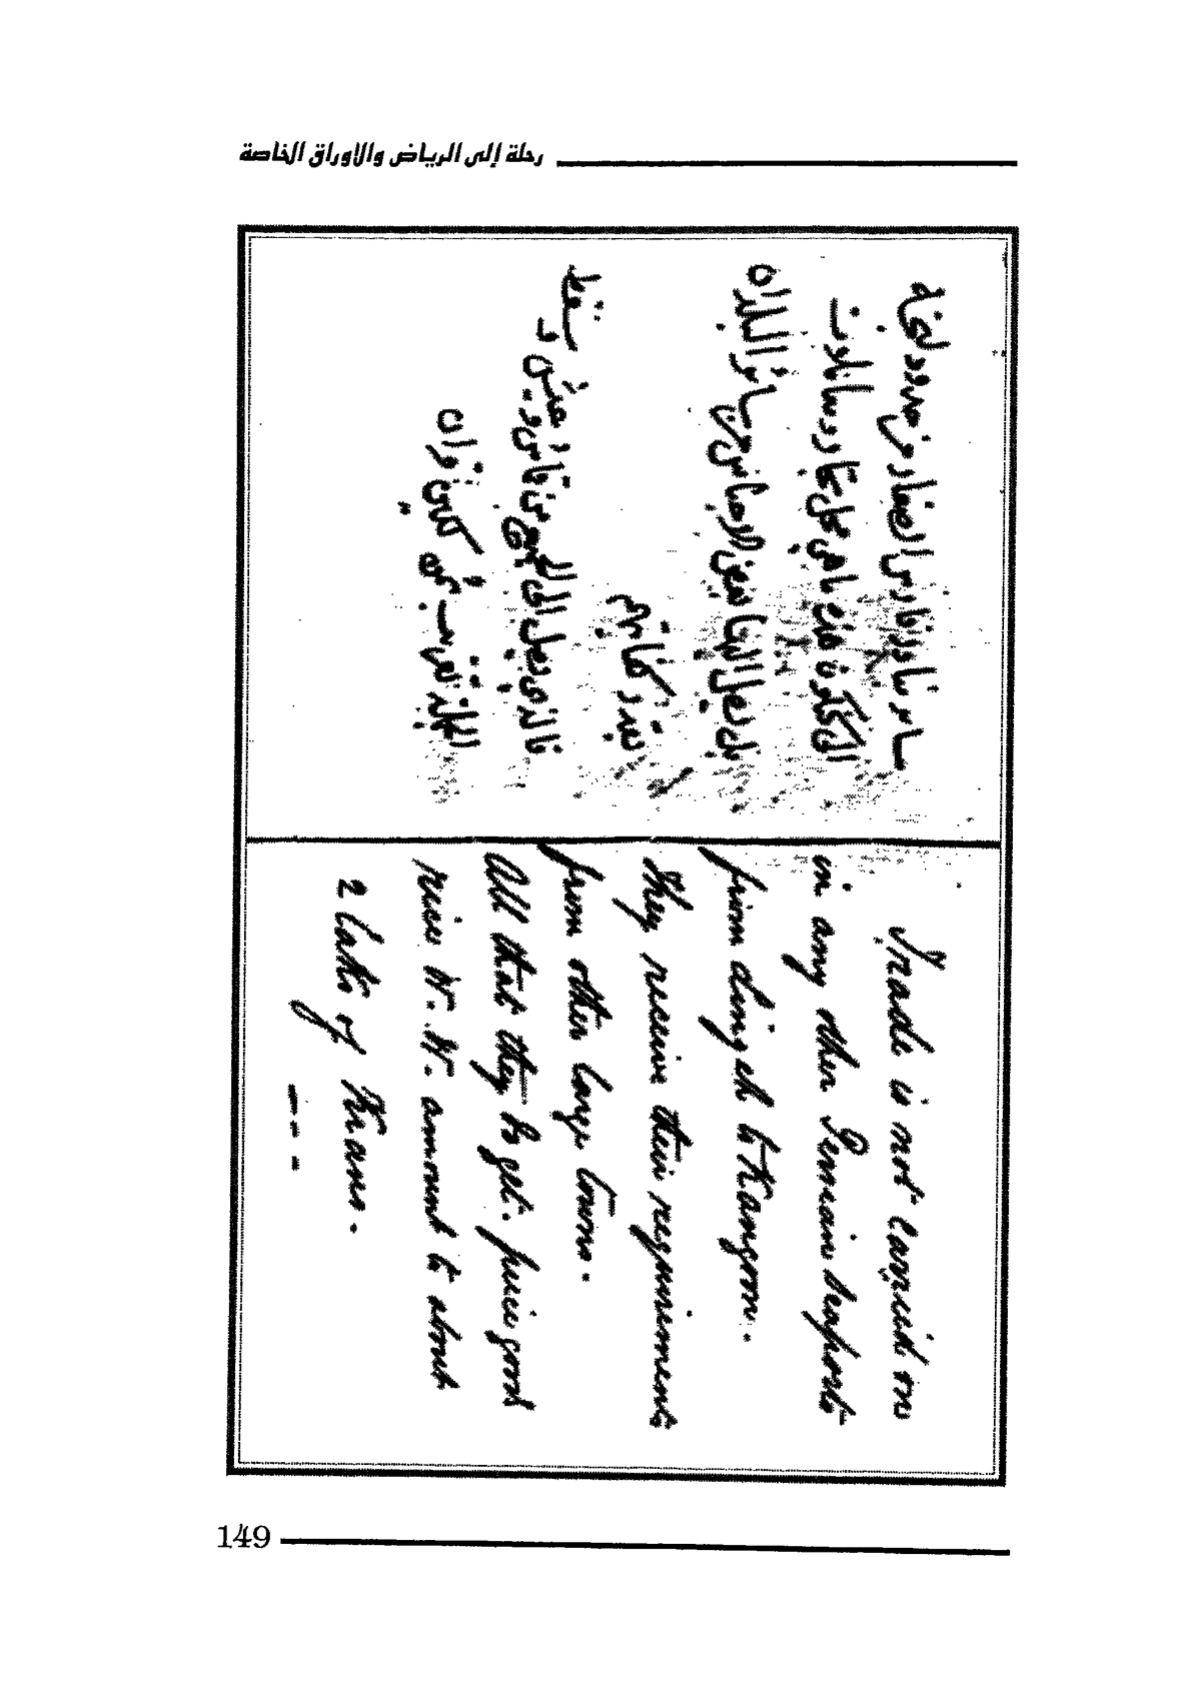 رحلة إلى الرياض والاوراق الخاصة
سائر بنادر فارس الصغار من حدود لنجة
الى كنكون
بل يصل اليها من سائر البلدان
بقدر كفايتهم فقط
فالذي يصل الى الجميع من قماش و عيش و
الجملة تقريب لكين قران
Trade is not carried on
in any other Persian seaports
from Lingah to Kangoon.
They receive their requirements
from other large towns.
All that they do get. piece goods
rice &. &. amount to about
2 laks of Krans.
149